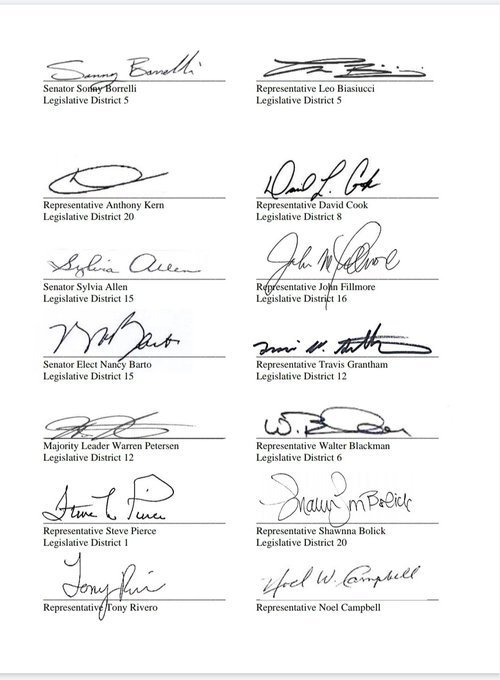 Sonny Borrelli
Senator Sonny Borrelli
Legislative District 5
Representative Leo Biasiucci
Legislative District 5
Representative Anthony Kern
Legislative District 20
David L. Cook
Representative David Cook
Legislative District 8
Sylvia Allen
Senator Sylvia Allen
Legislative District 15
John M Fillmore
Representative John Fillmore
Legislative District 16
Barto
Senator Elect Nancy Barto
Legislative District 15
Representative Travis Grantham
Legislative District 12
Majority Leader Warren Petersen
Legislative District 12
W.
Representative Walter Blackman
Legislative District 6
Steve Pierce
Representative Steve Pierce
Legislative District 1
Bolick
Representative Shawnna Bolick
Legislative District 20
Tony
Representative Tony Rivero
Noel W. Campbell
Representative Noel Campbell